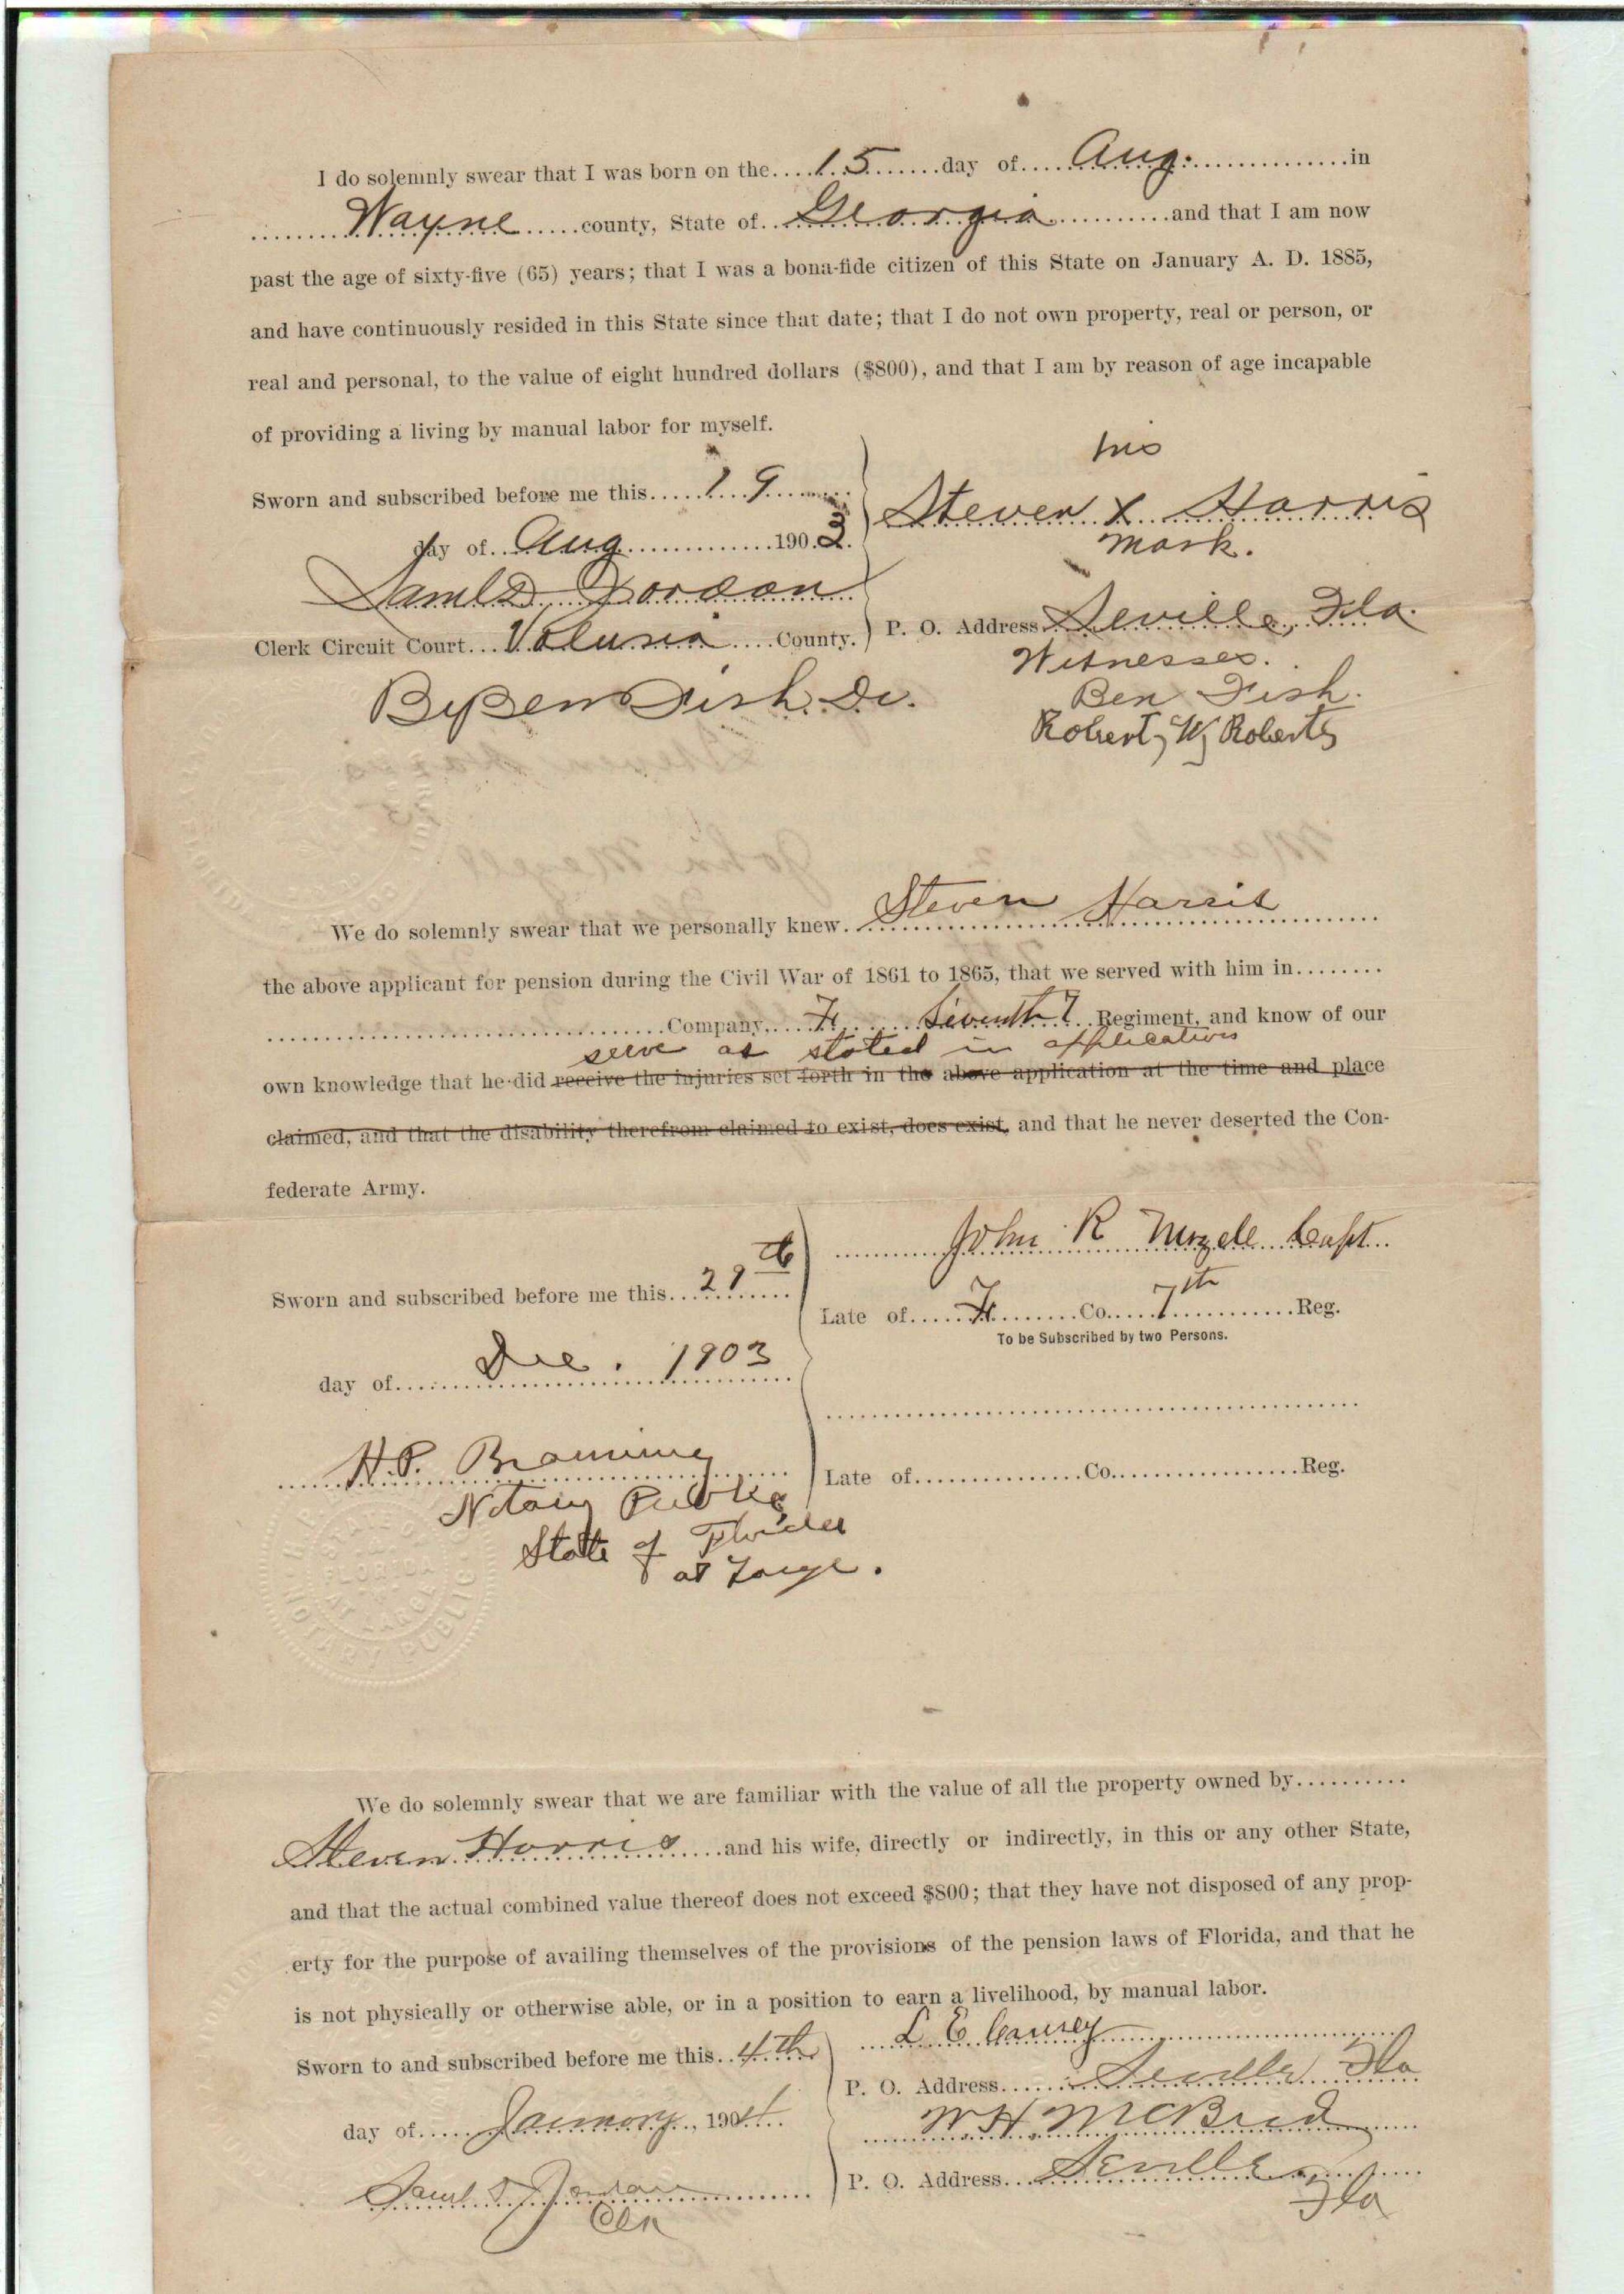 I do solemnly swear that I was born on the....15.......day of.....Aug.................in
........Wayne.....county, State of..Georgia...........and that I am now
past the age of sixty-five (65) years; that I was a bona-fide citizen of this State on January A. D. 1885,
and have continuously resided in this State since that date; that I do not own property, real or person, or
real and personal, to the value of eight hundred dollars ($800), and that I am by reason of age incapable
of providing a living by manual labor for myself.
his
Sworn and subscribed before me this.....19.........
Steven X Harris
mark.
day of..Aug...............1903.
Saml D Jordan
P. O. Address Seville, Fla.
Clerk Circuit Court...Volusia....County.
Witnesses.
By Ben Fish. Dc.
Ben Fish.
Robert W Roberts
We do solemnly swear that we personally knew..Steven Harris
the above applicant for pension during the Civil War of 1861 to 1865, that we served with him in........
..............................Company....F......Seventh 7..Regiment, and know of our
serve as stated in application
own knowledge that he did receive the injuries set forth in the above application at the time and place
claimed, and that the disability therefrom claimed to exist, does exist, and that he never deserted the Con-
federate Army.
John R Capt.
Sworn and subscribed before me this...29th
Late of.....F........Co....7th............Reg.
To be Subscribed by two Persons.
day of......Dec. 1903
H. P.
Late of................Co..................Reg.
Notary Public
State of Florida
at Large.
H. P.
STATE OF FLORIDA AT LARGE
NOTARY PUBLIC
We do solemnly swear that we are familiar with the value of all the property owned by..........
Steven Harris.....and his wife, directly or indirectly, in this or any other State,
and that the actual combined value thereof does not exceed $800; that they have not disposed of any prop-
erty for the purpose of availing themselves of the provisions of the pension laws of Florida, and that he
is not physically or otherwise able, or in a position to earn a livelihood, by manual labor.
L E Causey
Sworn to and subscribed before me this..4th
P. O. Address......Seville Fla
day of.....January., 1904
W H McBrid
P. O. Address...Seville
Fla
Saml D Jordan
Clk